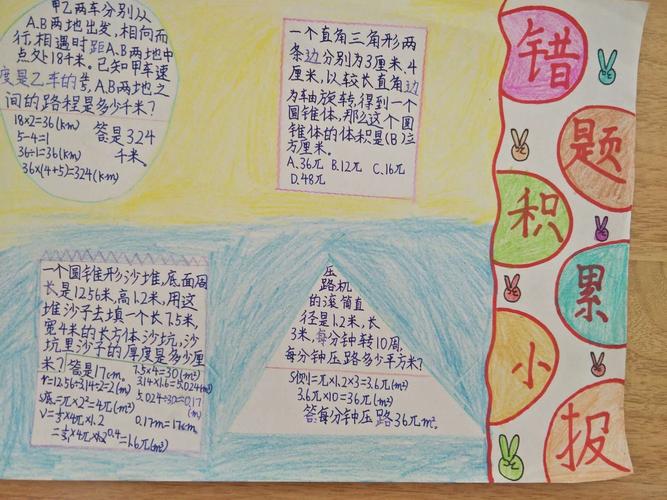 甲乙两车分别从
A.B两地出发,相向而
行,相遇时距A.B两地中
点处18千米。已知甲车速
度是乙车的,A.B两地之
间的路程是多少千米?
18×2=36(km)
5-4=1
36÷1=36(km)
36×(4+5)=324(km)
答是324
千米。
一个直角三角形两
条边分别为3厘米、4
厘米,以较长直角边
为轴旋转,得到一个
圆锥体,那么这个圆
锥体的体积是(B)立
方厘米。
A.36兀 B.12兀 C.16兀
D.48兀
一个圆锥形沙堆,底面周
长是12.56米,高1.2米,用这
堆沙子去填一个长7.5米,
宽4米的长方体沙坑,沙
坑里沙子的厚度是多少厘
米?答是17cm。
r=12.56÷3.14÷2=2(m)
S底=兀×2²=4兀(m²)
V=⅓×4兀×1.2
=⅓×4兀×1.2 0.4=1.6兀(m³)
7.5×4=30(m²)
3.14×1.6=5.024(m³)
5.024÷30≈0.17
(m)
0.17m=17cm
压
路机
的滚筒直
径是1.2米,长
3米,每分钟转10周,
每分钟压路多少平方米?
S侧=兀×1.2×3=3.6兀(m²)
3.6兀×10=36兀(m²)
答每分钟压路36兀m²。
错
题
积
累
小
报